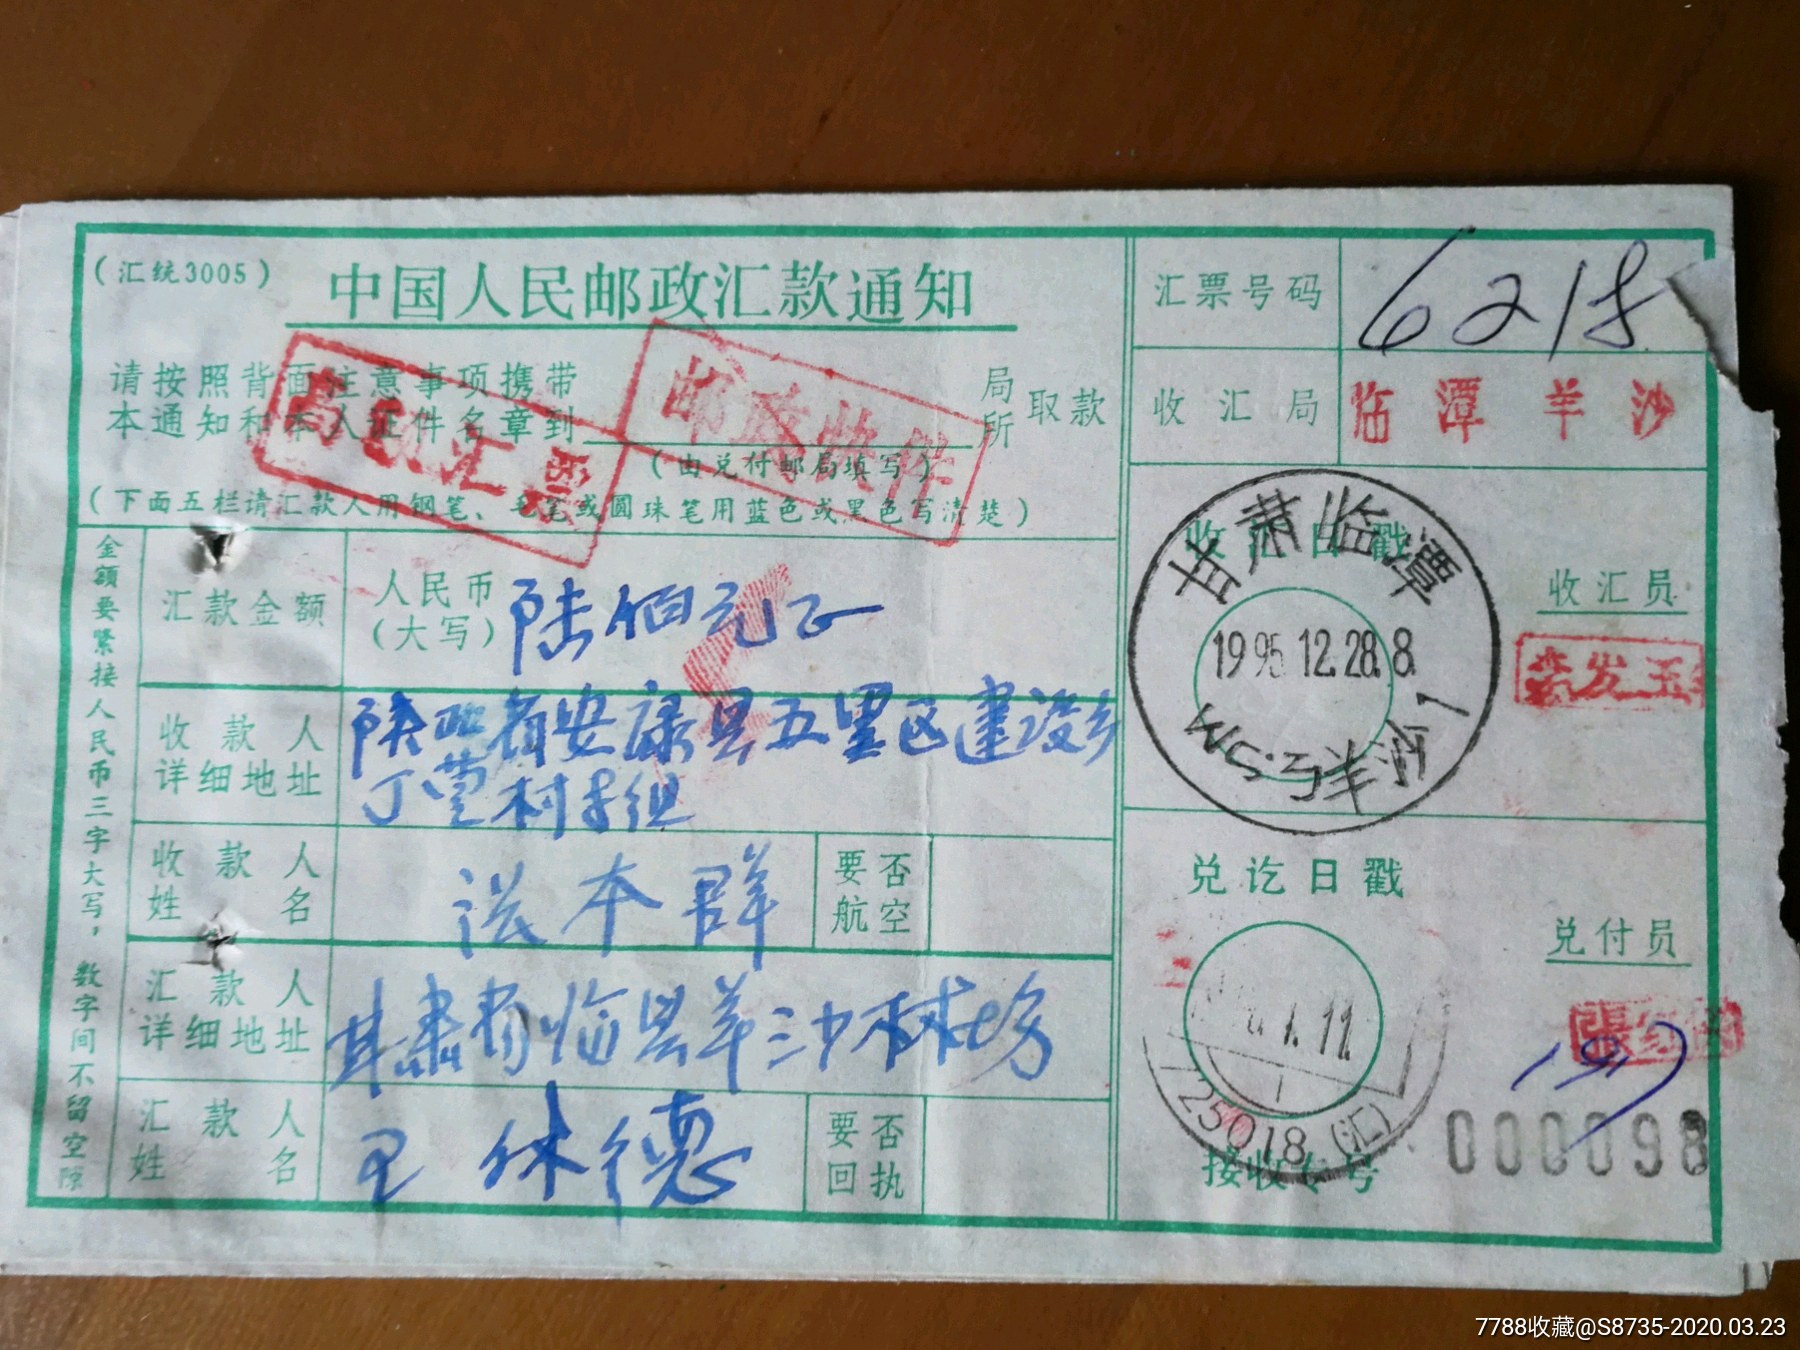 (汇统3005)
中国人民邮政汇款通知
请按照背面注意事项携带
本通知和本人证件名章到
局
所
取款
(由兑付邮局填写)
(下面五栏请汇款人用钢笔、毛笔或圆珠笔用蓝色或黑色写清楚)
高额汇票
邮政快件
金额要紧接人民币三字大写，数字间不留空隙
汇款金额
人民币
(大写)
陆佰元正
收款人
详细地址
陕西省安康县五里区建设乡
村 组
收款人
姓名
本群
要否
航空
汇款人
详细地址
甘肃省临县羊沙林场
汇款人
姓名
王 休德
要否
回执
汇票号码
6218
收汇局
临潭羊沙
收汇日戳
甘肃临潭
1995.12.28.8
羊沙 1
收汇员
发玉
兑讫日戳
1.11
725018(汇)
兑付员
張红
接收专号
000098
7788收藏@S8735-2020.03.23